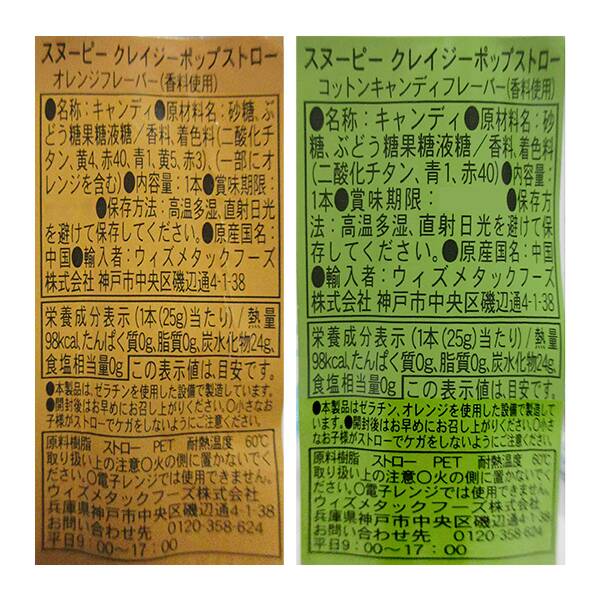 スヌーピー クレイジーポップストロー
オレンジフレーバー(香料使用)
●名称：キャンディ●原材料名：砂糖、ぶ
どう糖果糖液糖／香料、着色料(二酸化チ
タン、黄4、赤40、青1、黄5、赤3)、(一部にオ
レンジを含む)●内容量：1本●賞味期限：
●保存方法：高温多湿、直射日光
を避けて保存してください。●原産国名：
中国●輸入者：ウィズメタックフーズ
株式会社 神戸市中央区磯辺通4-1-38
栄養成分表示(1本(25g)当たり)/熱量
98kcal、たんぱく質0g、脂質0g、炭水化物24g、
食塩相当量0g この表示値は、目安です。
●本製品は、ゼラチンを使用した設備で製造しています。
●開封後はお早めにお召し上がりください。○小さなお
子様がストローでケガをしないようにご注意ください。
原料樹脂 ストロー PET 耐熱温度 60℃
取り扱い上の注意○火の側に置かないでく
ださい。○電子レンジでは使用できません。
ウィズメタックフーズ株式会社
兵庫県神戸市中央区磯辺通4-1-38
お問い合わせ先 0120-358-624
平日9：00〜17：00
スヌーピー クレイジーポップストロー
コットンキャンディフレーバー(香料使用)
●名称：キャンディ●原材料名：砂
糖、ぶどう糖果糖液糖／香料、着色料
(二酸化チタン、青1、赤40)●内容量：
1本●賞味期限： ●保存方
法：高温多湿、直射日光を避けて保
存してください。●原産国名：中国
●輸入者：ウィズメタックフーズ
株式会社 神戸市中央区磯辺通4-1-38
栄養成分表示(1本(25g)当たり)/熱量
98kcal、たんぱく質0g、脂質0g、炭水化物24g、
食塩相当量0g この表示値は、目安です。
●本製品は、ゼラチン、オレンジを使用した設備で製造して
います。●開封後はお早めにお召し上がりください。○小さな
お子様がストローでケガをしないようにご注意ください。
原料樹脂 ストロー PET 耐熱温度 60℃
取り扱い上の注意○火の側に置かないでく
ださい。○電子レンジでは使用できません。
ウィズメタックフーズ株式会社
兵庫県神戸市中央区磯辺通4-1-38
お問い合わせ先 0120-358-624
平日9：00〜17：00